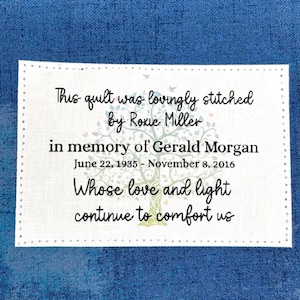 This quilt was lovingly stitched
by Roxie Miller
in memory of Gerald Morgan
June 22, 1935 - November 8, 2016
Whose love and light
continue to comfort us